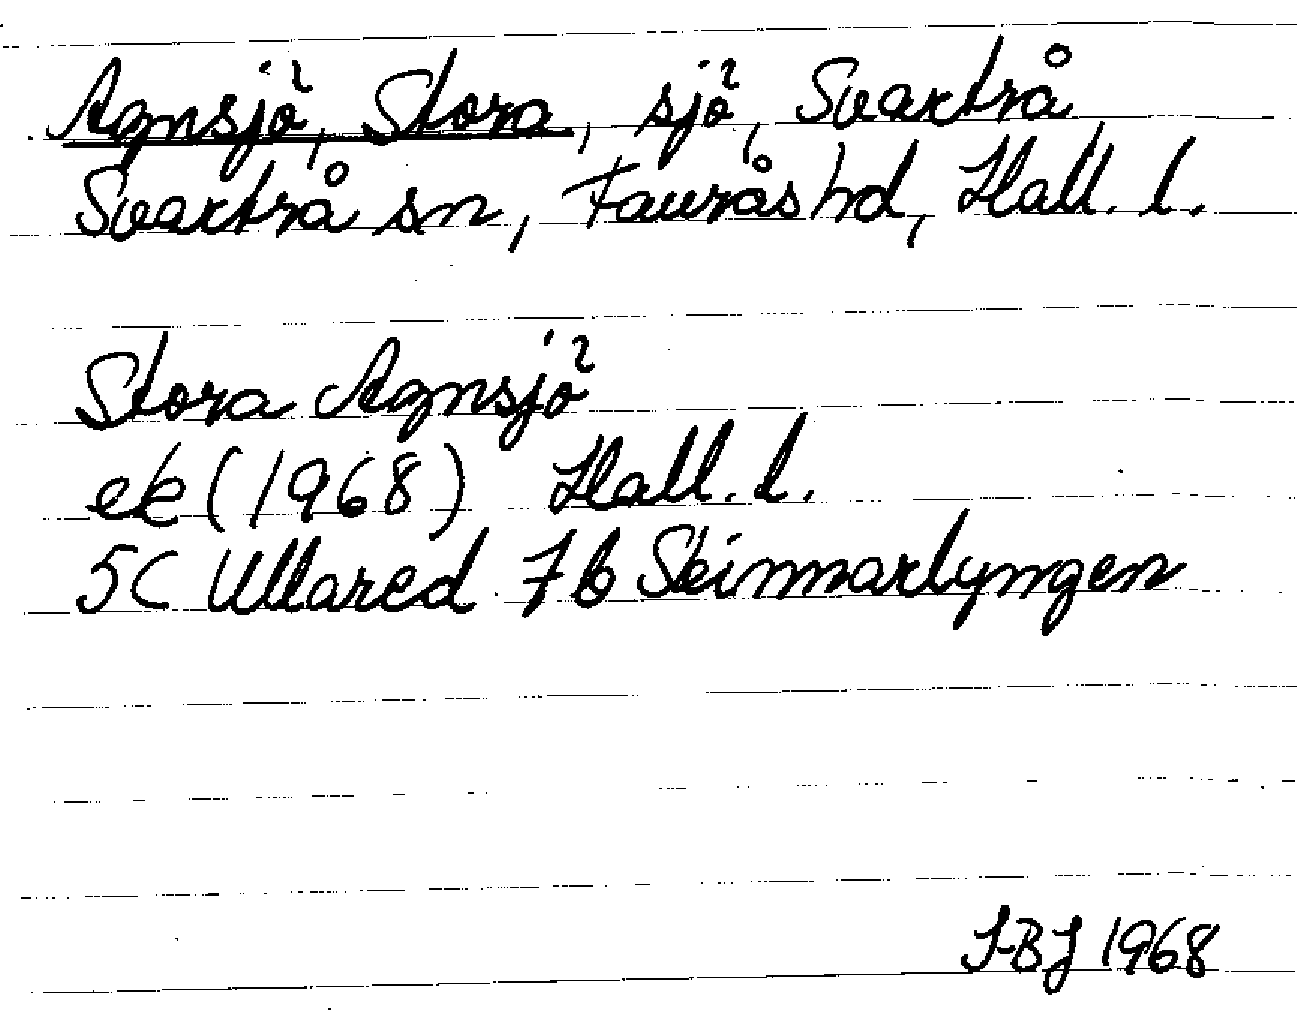 Agnsjö, Stora, sjö, Svartrå
Svartrå sn, Faurås hd, Hall. l.
Stora Agnsjö
ek (1968) Hall. l.
5C Ullared 7b Skinnarlyngen
SBJ 1968